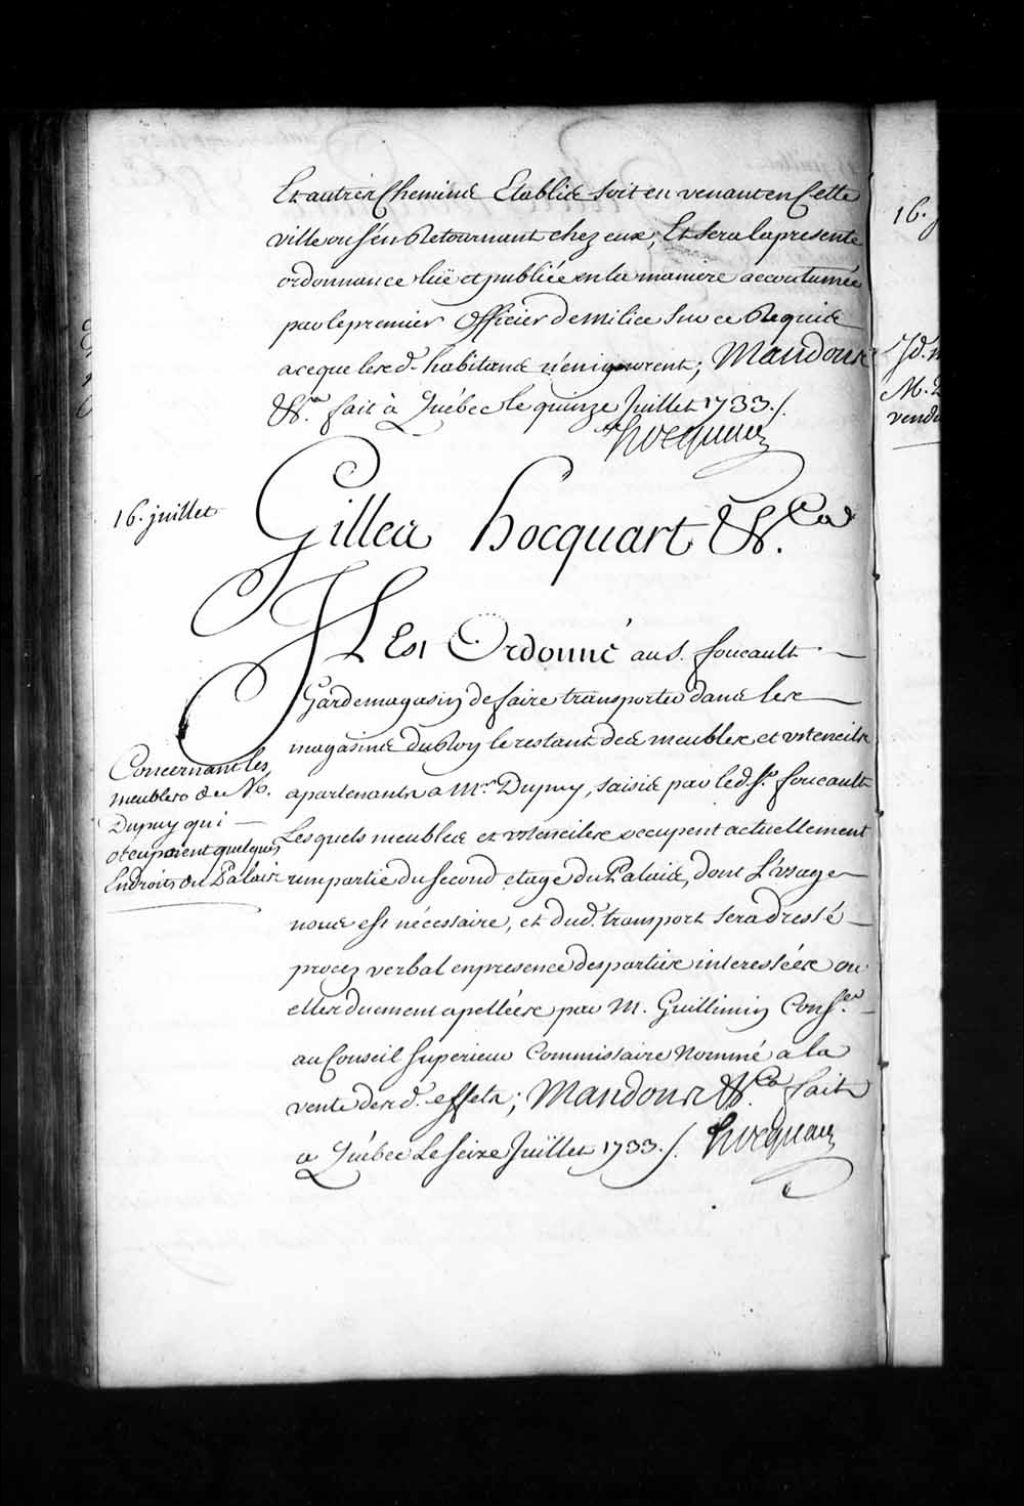 Et autres Chemins Etablis soit en venant en Cette
ville ou s'en Retournant chez eux; Et sera la presente
ordonnance luë et publiée en la maniere accoutumée
par le premier Officier de milice Sur ce Requis
a ce que lesd. habitans n'en ignorent; Mandons
&c.ra fait à Québec le quinze Juillet 1733./.
hocquart
16. juillet
Gilles hocquart &c.ra
Il Est Ordonné au S. foucault
Gardemagasin de faire transporter dans les
magasins du Roy le restant des meubles et ustencils
apartenants a Mr. Dupuy, saisis par led. Sr. foucault
Lesquels meubles et ustenciles occupent actuellement
une partie du second etage du Palais, dont L'usage
nous est nécessaire, et dud. transport sera dressé
procez verbal en presence des parties interessées ou
elles duement apellées par M. Guillimin Conser.
au Conseil Superieur Commissaire Nommé a la
vente desd. effets; Mandons &c.ra fait
a Québec Le seize Juillet 1733./. hocquart
Concernant les
meubles de M.
Dupuy qui
occupoient quelques
Endroits du Palais
16. j
Id.
M.
vend